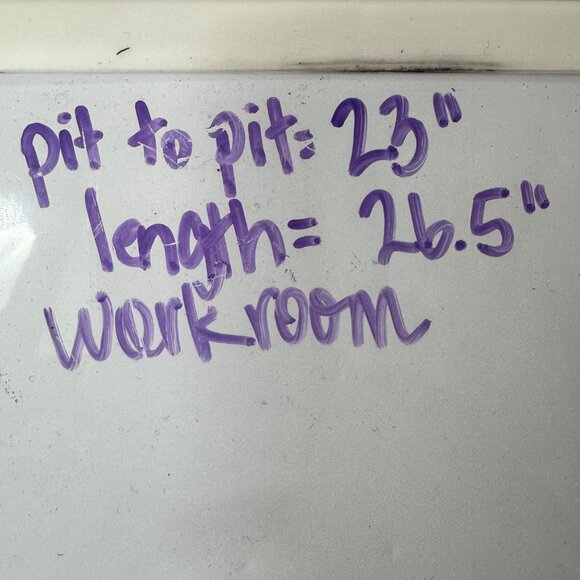 pit to pit: 23"
length= 26.5"
workroom